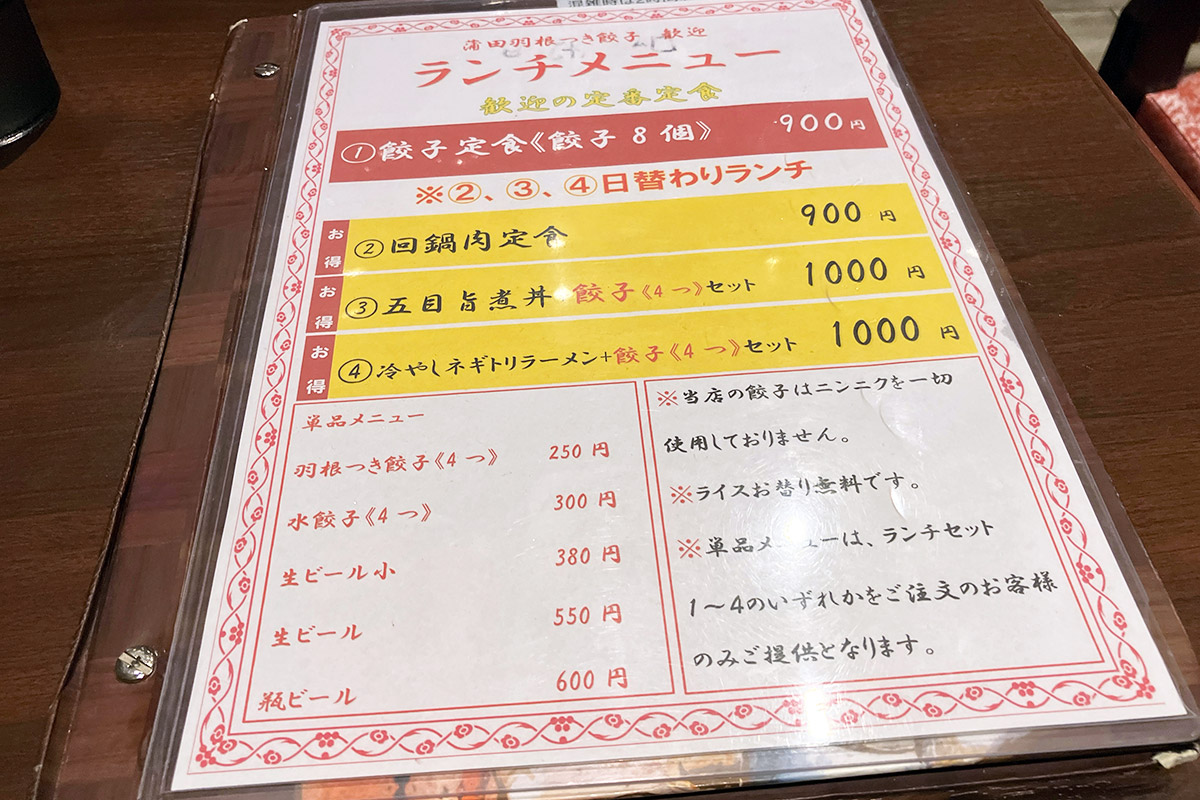 蒲田羽根つき餃子 歓迎
ランチメニュー
歓迎の定番定食
①餃子定食《餃子8個》 900円
※②、③、④日替わりランチ
お得 ②回鍋肉定食 900円
お得 ③五目旨煮丼 餃子《4つ》セット 1000円
お得 ④冷やしネギトリラーメン+餃子《4つ》セット 1000円
単品メニュー
羽根つき餃子《4つ》 250円
水餃子《4つ》 300円
生ビール小 380円
生ビール 550円
瓶ビール 600円
※当店の餃子はニンニクを一切
使用しておりません。
※ライスお替り無料です。
※単品メニューは、ランチセット
1〜4のいずれかをご注文のお客様
のみご提供となります。